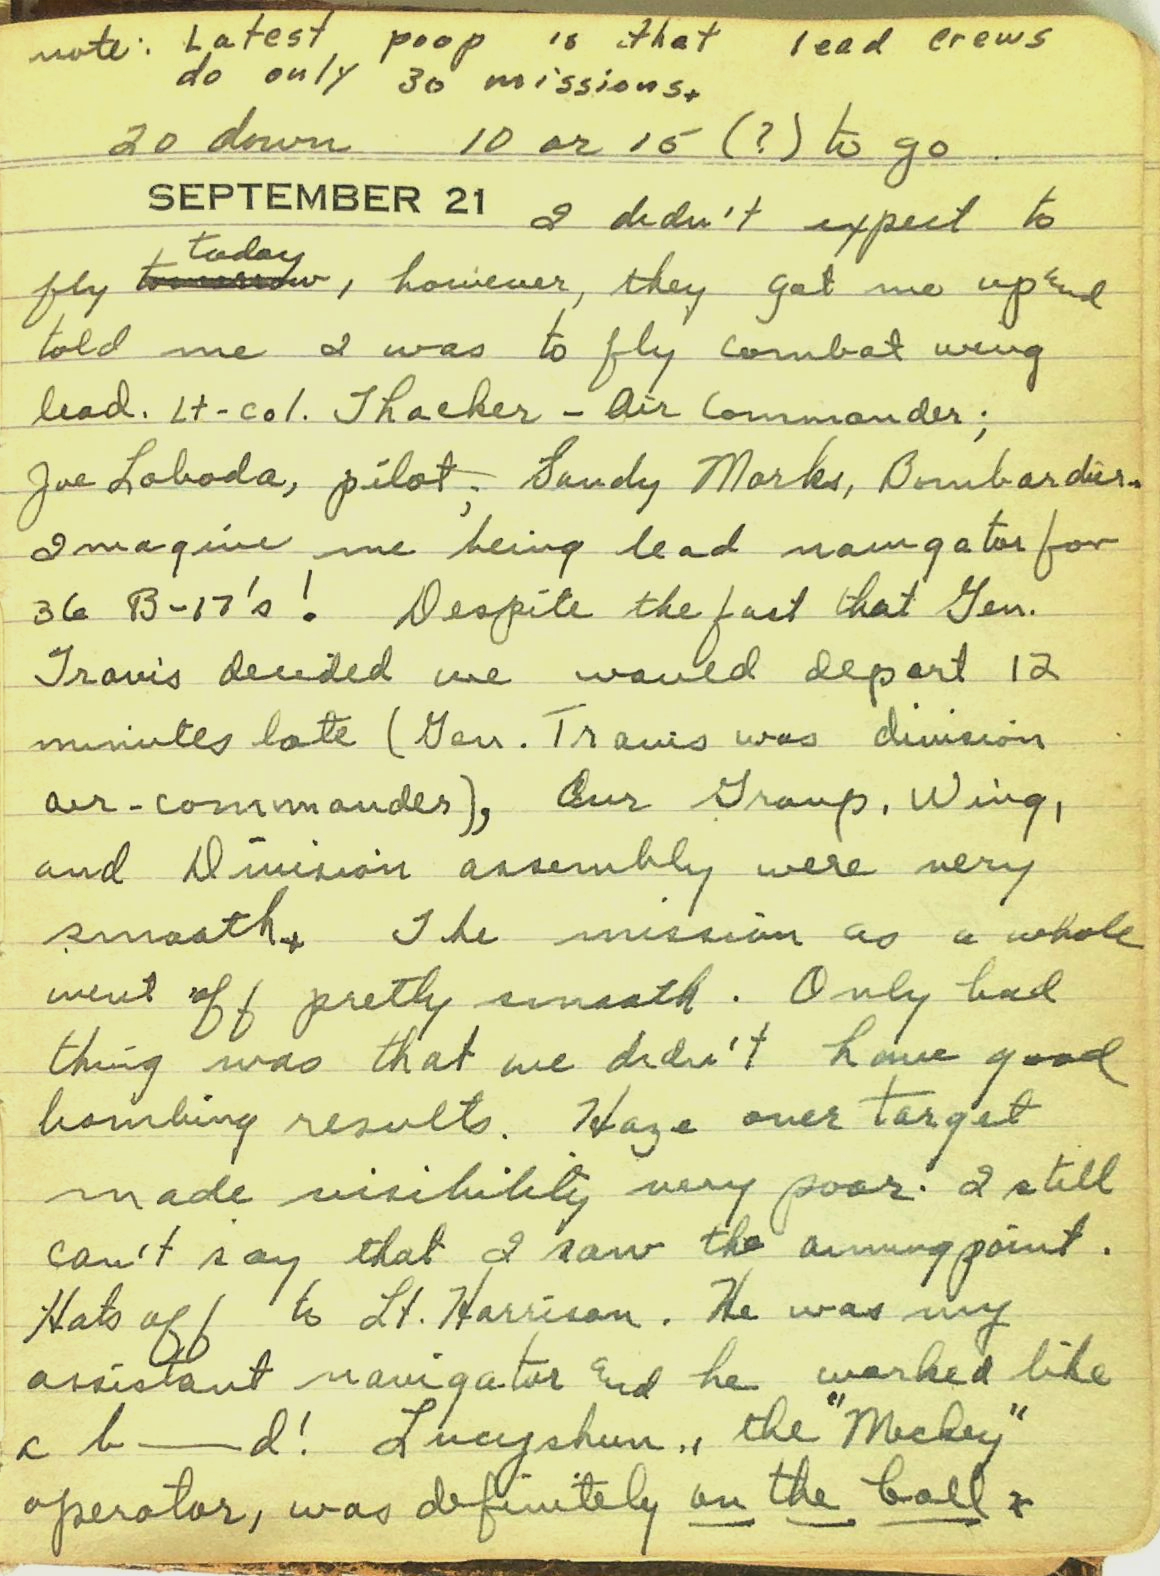 note: Latest poop is that lead crews
do only 30 missions.
20 down 10 or 15 (?) to go.
SEPTEMBER 21 I didn't expect to
today
fly tomorrow, however, they got me up and
told me I was to fly combat wing
lead. Lt-col. Thacker - Air Commander;
Joe Loboda, pilot; Sandy Marks, Bombardier.
Imagine me being lead navigator for
36 B-17's! Despite the fact that Gen.
Travis decided we would depart 12
minutes late (Gen. Travis was division
air-commander), Our Group, Wing,
and Division assembly were very
smooth. The mission as a whole
went off pretty smooth. Only bad
thing was that we didn't have good
bombing results. Haze over target
made visibility very poor. I still
can't say that I saw the aiming point.
Hats off to Lt. Harrison. He was my
assistant navigator and he worked like
a b——d! Lucyshun, the "Mickey"
operator, was definitely on the ball.